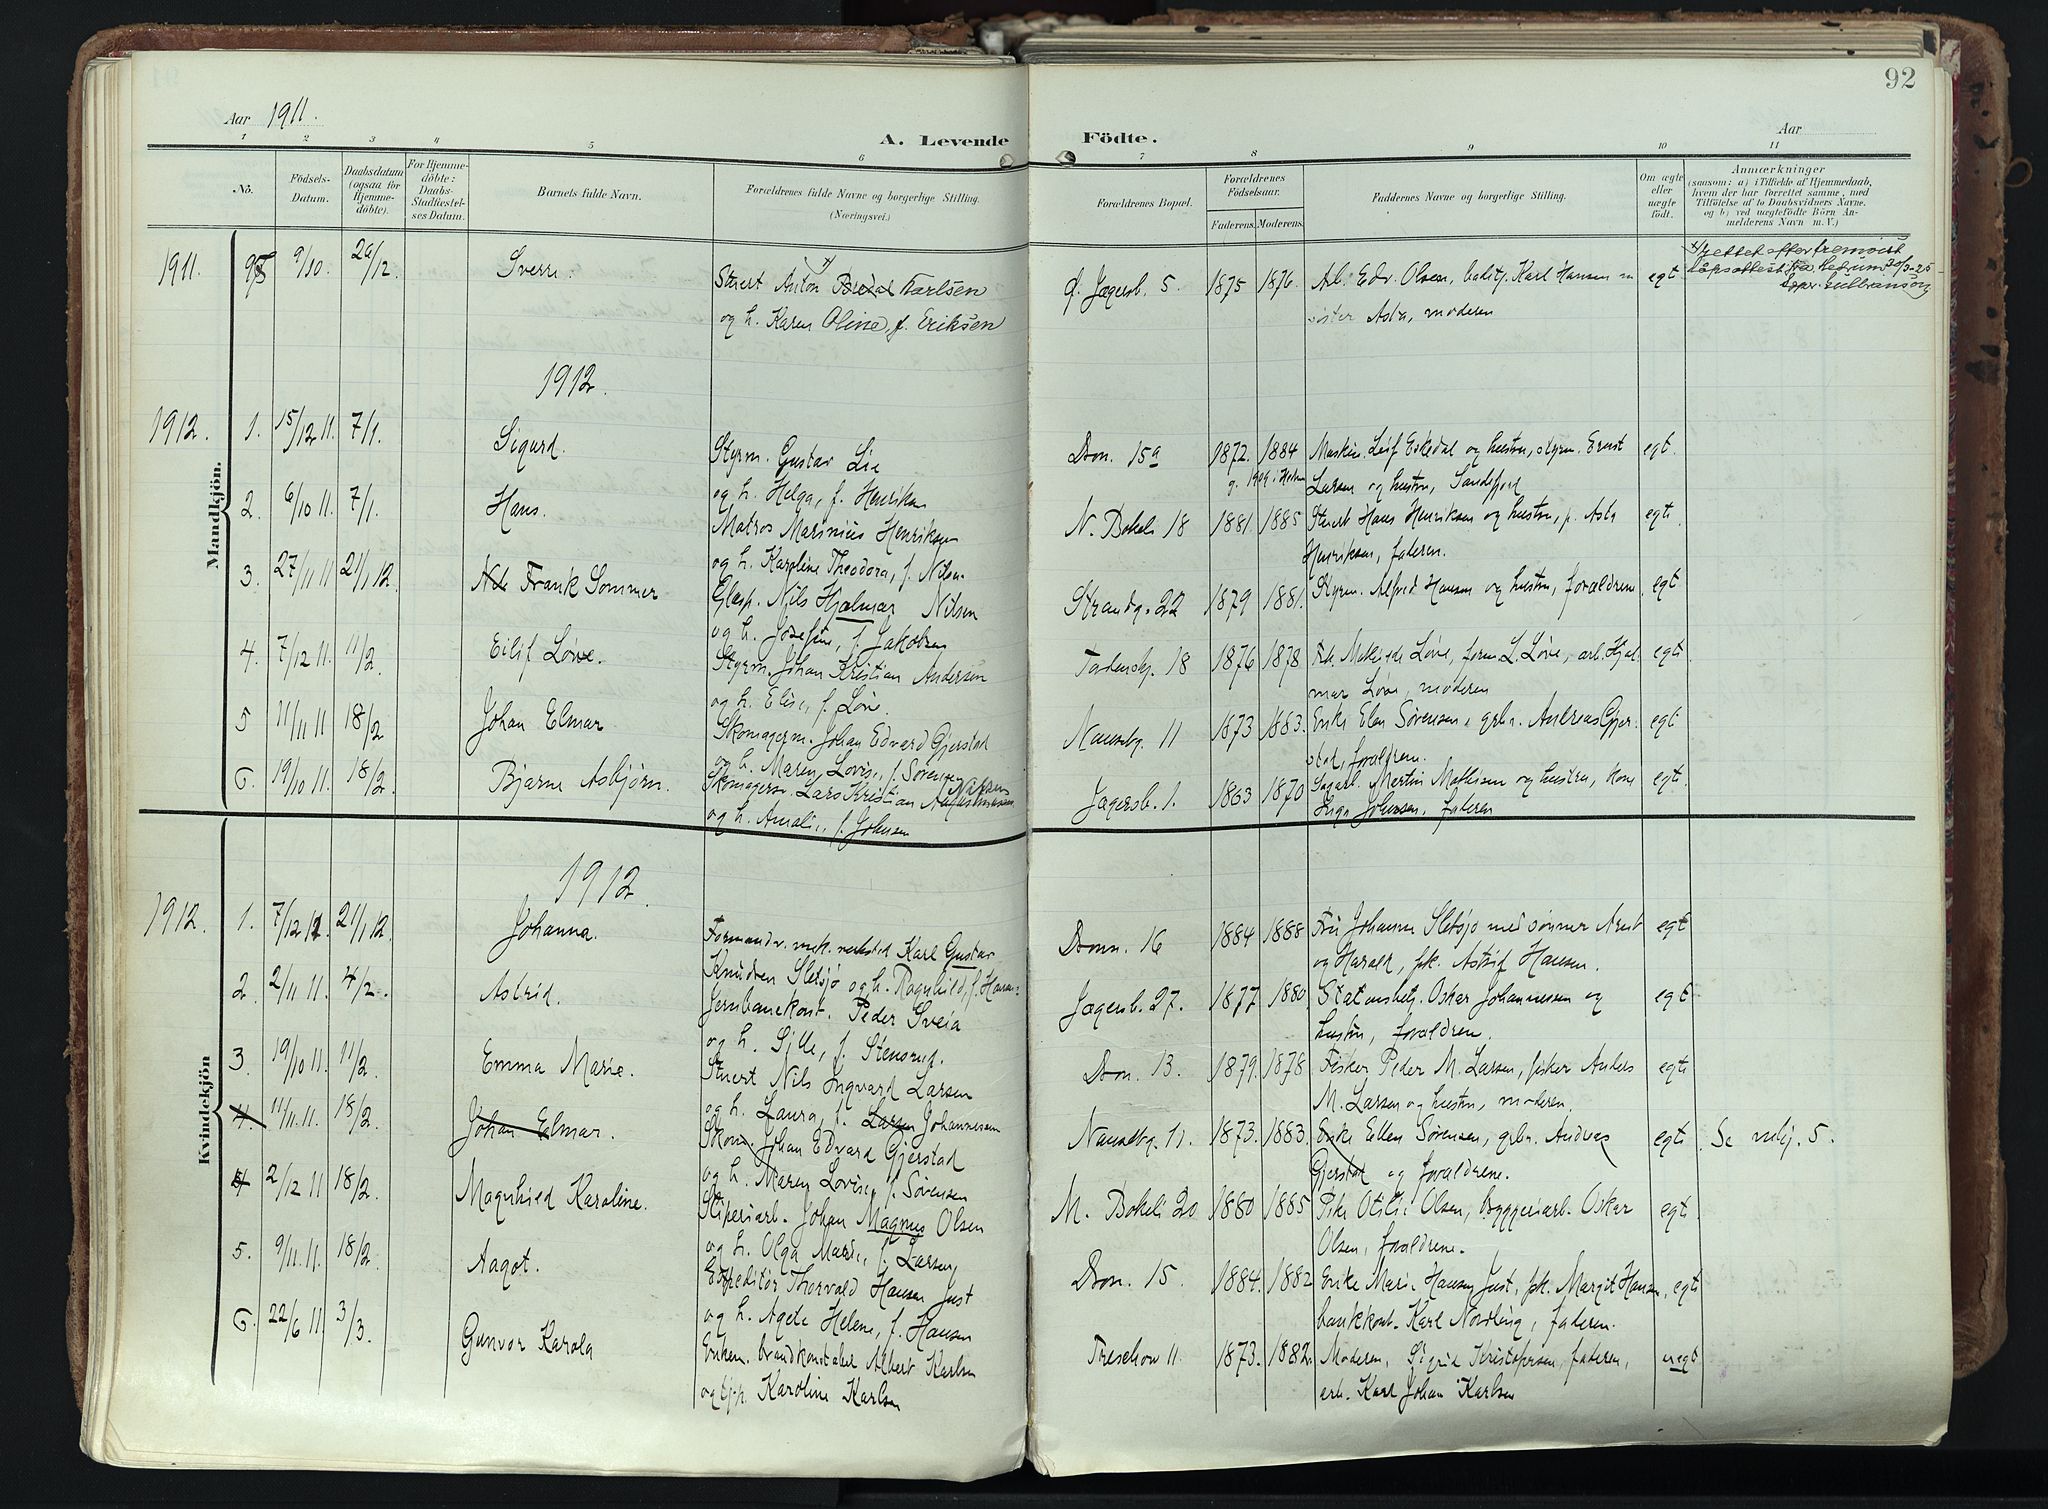 92
Aar 1911.
Aar
A. Levende Födte.
1 2 3 4 5 6 7 8 9 10 11
No.
Födsels-Datum.
Daabsdatum (ogsaa for Hjemme-döbte).
For Hjemme-döbte: Daabs-Stadfæstel-ses Datum.
Barnets fulde Navn.
Forældrenes fulde Navne og borgerlige Stilling. (Næringsvei.)
Forældrenes Bopæl.
Forældrenes Födselsaar.
Faderens. Moderens.
Faddernes Navne og borgerlige Stilling.
Om ægte eller uægte födt.
Anmærkninger
(saasom: a) i Tilfælde af Hjemmedaab, hvem der har forrettet samme, med Tilföielse af to Daabsvidners Navne, og b) ved uægtefödte Börn An-melderens Navn m. V.)
Mandkjön.
1911. 95 9/10. 26/12. Sverre. Stuert Anton Karlsen
og h. Karen Oline, f. Eriksen
Jagersb. 5. 1875 1876. Arb. Edv. Olsen, Karl Hansen
søster Asta, moderen
egt
1912.
1912. 1. 15/12 11. 7/1. Sigurd. Styrm. Gustav Lie
og h. Helga, f. Henriksen
Dron. 15a 1872. 1884 Leif Eskedal og hustru, styrm. Ernst
Larsen og hustru, Sandefjord
egt.
2. 6/10 11. 7/1. Hans. Matros Marinius Henriksen
og h. Karoline Theodora, f. Nilsen
N. Bokeli 18 1881. 1885 Stuert Hans Henriksen og hustru, p. Asta
Henriksen, faderen.
egt.
3. 27/11 11 21/1 12. Frank Sommer Glasp. Nils Hjalmar Nilsen
og h. Josefine, f. Jakobsen
Strandg. 22 1879 1881. Styrm. Alfred Hansen og hustru, forældrene
egt
4. 7/12 11. 11/2. Eilif Løve. Styrm. Johan Kristian Andersen
og h. Elise, f. Løve.
Tordenskj. 18 1876 1878 Løve, L. Løve, arb. Hjal-
mar Løve, moderen
egt
5 11/11 11 18/2 Johan Elmar Skomagerm. Johan Edvard Gjerstad
og h. Maren Lovise, f. Sørensen
Nansetg. 11 1873 1883. Enke Elen Sørensen, grbr. Andreas Gjer-
stad, forældrene.
egt
6. 19/10 11. 18/2. Bjarne Asbjørn. Skomagersv. Lars Kristian
og h. Amalie, f. Johnsen
Jagersb. 1. 1863 1870 Martin Mathisen og hustru, kone
Inga Johnsen, faderen
egt.
Kvindekjön
1912.
1912. 1. 7/12 11. 21/1 12. Johanna. Formand v. mek. verksted Karl Gustav
Knudsen Sletsjø og h. Ragnhild, f. Hansen
Dron. 16 1884 1888 Fru Johanne Sletsjø med sønner Arent
og Harald, pk. Astrid Hansen.
egt
2. 2/11 11. 4/2. Astrid. Jernbanekont. Peder Sveia
og h. Sille, f. Stensrud.
Jagersb. 27. 1877 1880. Oskar Johannessen og
hustru, forældrene.
egt
3. 19/10 11 11/2. Emma Marie. Stuert Nils Ingvard Larsen
og h. Laura, f. Larsen Johannesen
Dron. 13. 1879. 1878 Fisker Peder M. Larsen, fisker Anders
M. Larsen og hustru, moderen.
egt
4. 11/11. 11. 18/2. Johan Elmar. Skom. Johan Edvard Gjerstad
og h. Maren Lovise, f. Sørensen
Nansetg. 11. 1873. 1883. Enke Ellen Sørensen, grbr. Andreas
Gjerstad og forældrene.
egt. Se mkj. 5.
4 2/12 11 18/2. Magnhild Karoline. Sliperiarb. Johan Magnus Olsen
og h. Olga Marie, f. Larsen
M. Bokeli 20 1880 1885 Pike Otilie Olsen, bryggeriarb. Oskar
Olsen, forældrene.
egt.
5. 9/11. 11. 18/2. Aagot. Expeditør Thorvald Hansen Just
og h. Agda Helene, f. Hansen
Dron. 15. 1884. 1882 Enke Marie Hansen Just, pk. Margit Hansen,
bankkont. Karl Nordling, faderen.
egt
6. 22/6 11. 3/3. Gunvor Karola Enkem. brandkonstabel Albert Karlsen
og tj.p. Karoline Karlsen
Treschow 11. 1873. 1882. Moderen, Sigrid Kristofersen, faderen,
arb. Karl Johan Karlsen
uegt